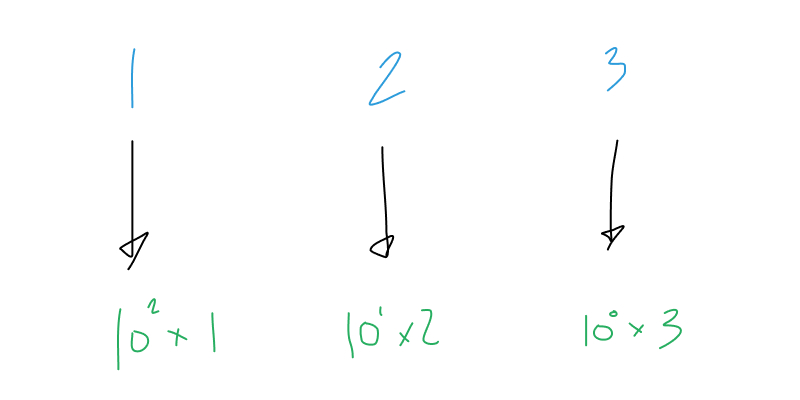 1 2 3
10² × 1 10¹ × 2 10⁰ × 3